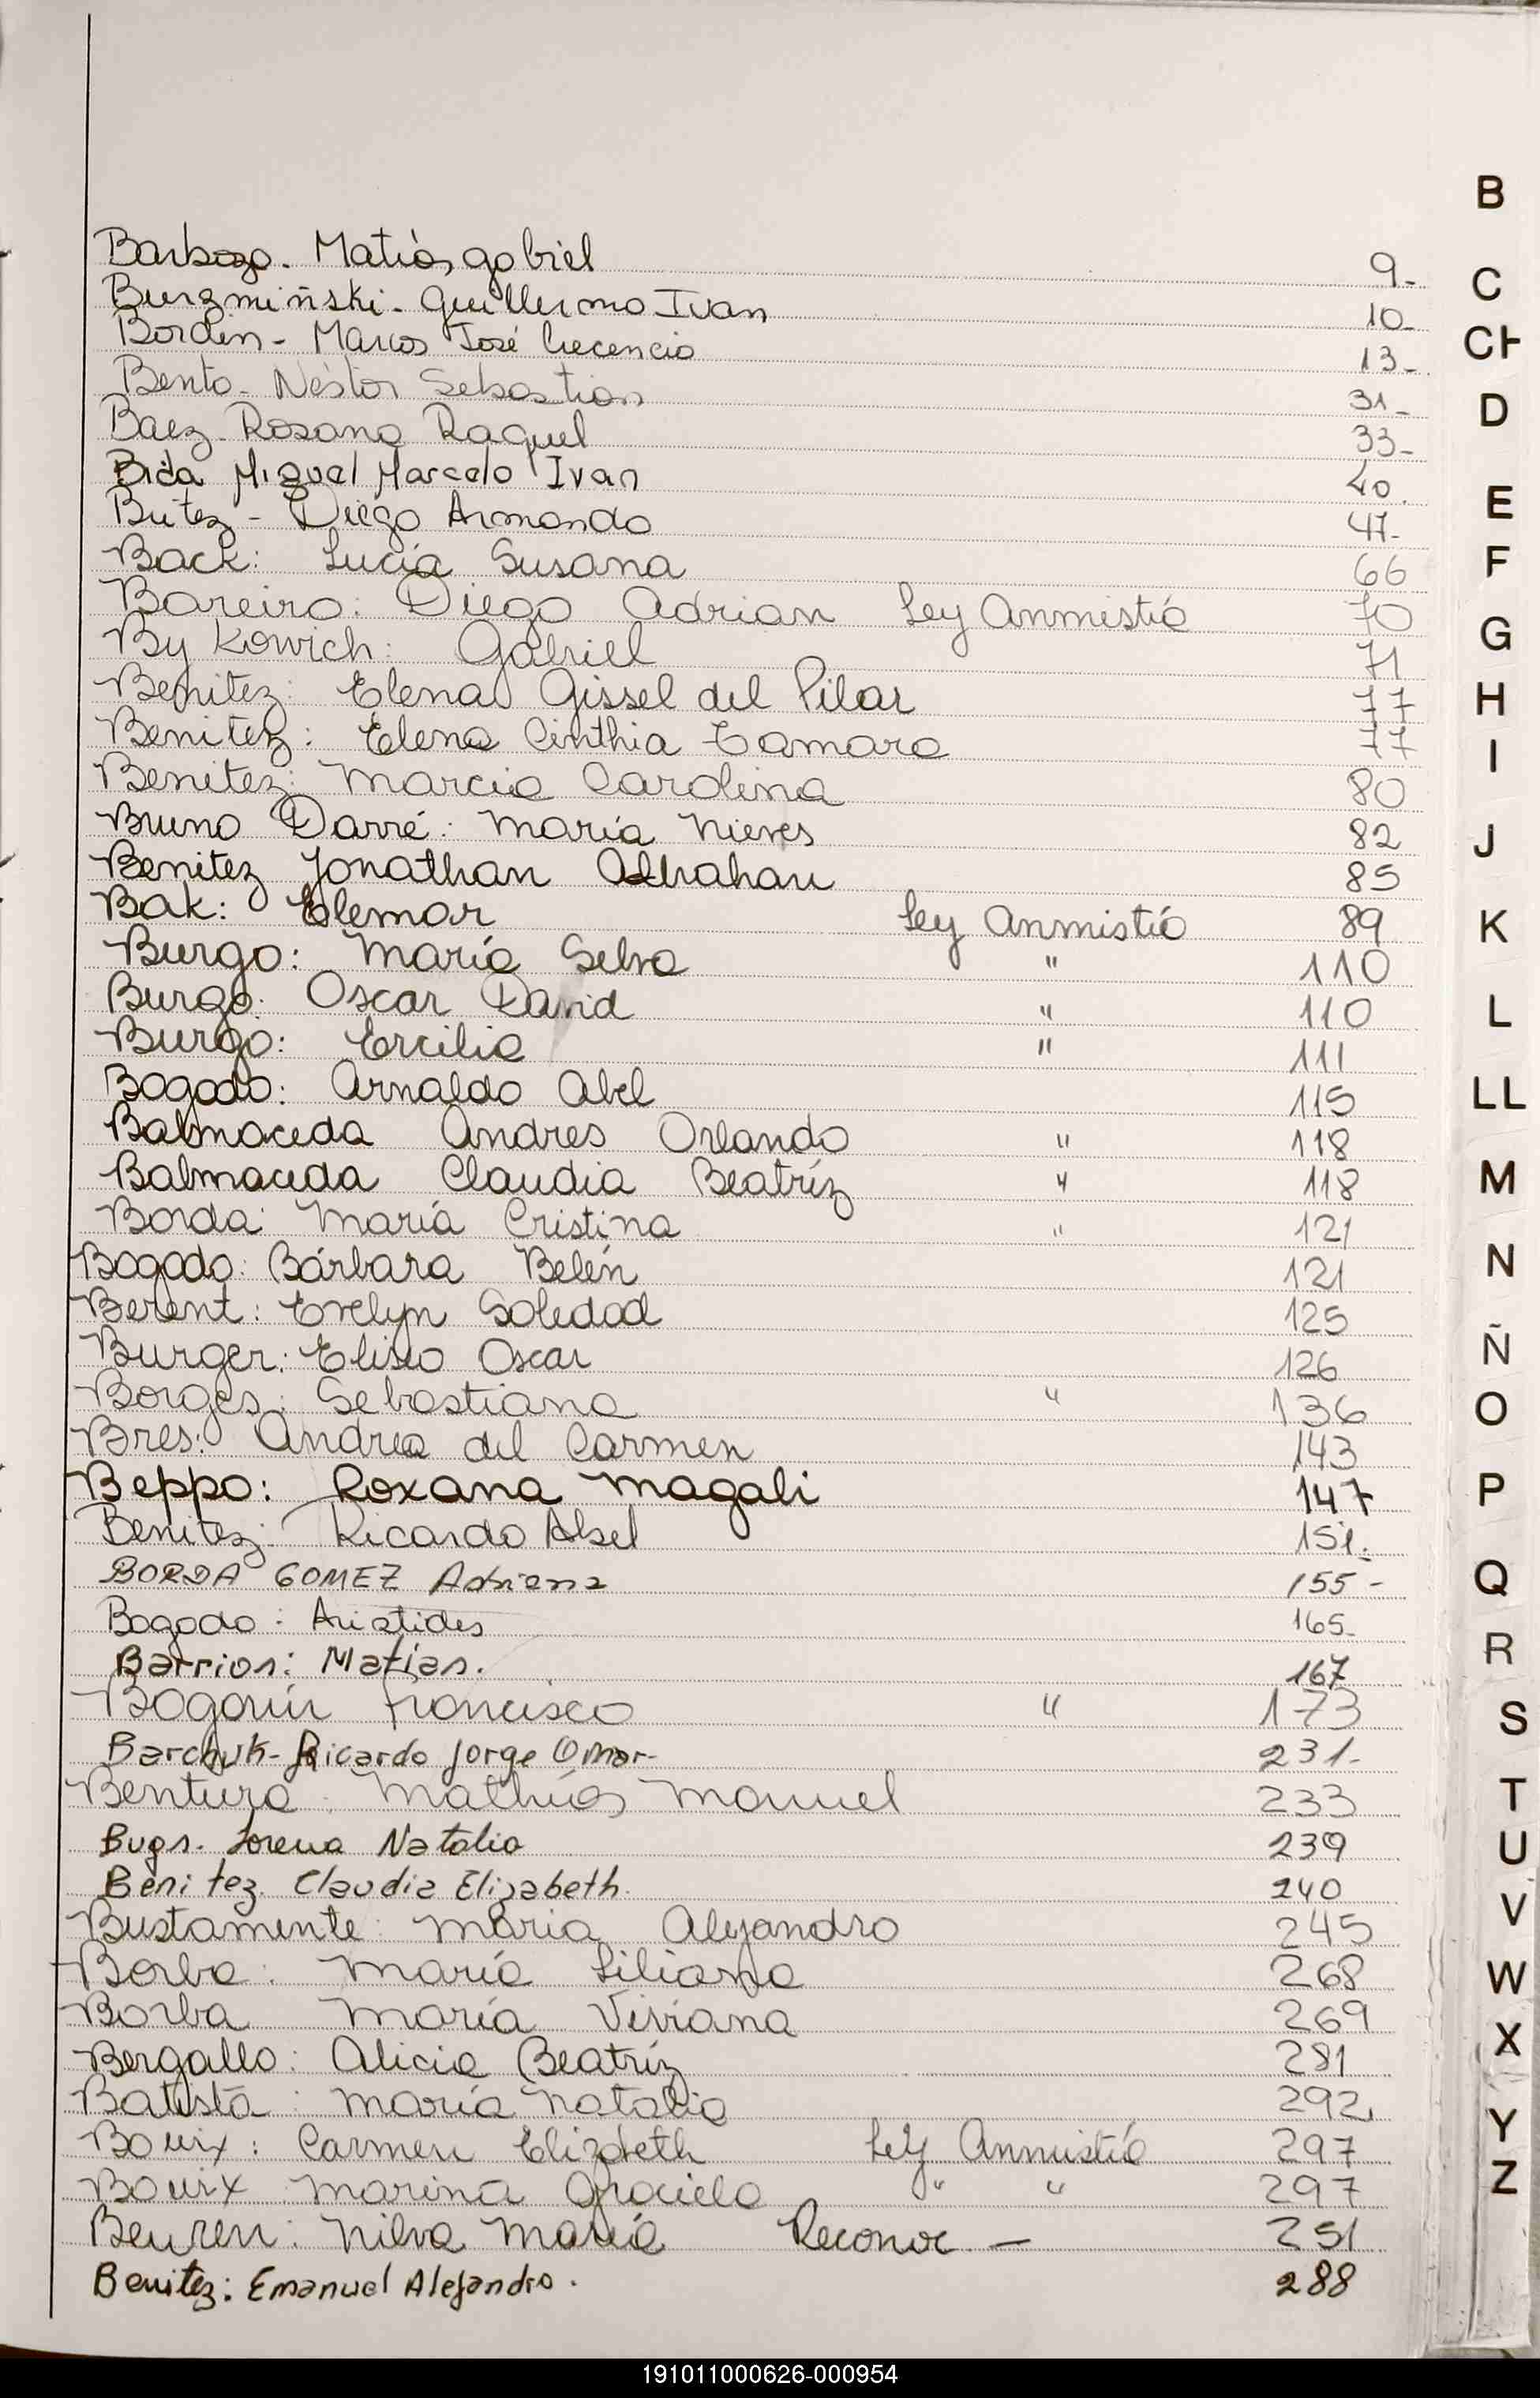 Barbozo. Matías gabriel 9-
Burzmiñski- Guillermo Ivan 10-
Bordin- Marcos José Crecencio 13-
Bento- Néstor Sebastian 31-
Baez- Rosana Raquel 33-
Bida Miguel Marcelo Ivan 40.
Butez- Diego Armando 47-
Back: Lucía Susana 66
Bareiro: Diego Adrian Ley Anmistía 70
By Kowich: Gabriel 71
Benitez: Elena Gissel del Pilar 77
Benitez: Elena Cinthia Tamara 77
Benitez: Marcia Carolina 80
Bruno Darré: María Nieves 82
Benitez Jonathan Abrahan 85
Bak: Elemar Ley Anmistía 89
Burgo: María Selva " 110
Burgo: Oscar David " 110
Burgo: Ercilia " 111
Bogado: Arnaldo Abel 115
Balmaceda Andres Orlando " 118
Balmaceda Claudia Beatríz " 118
Borda: María Cristina " 121
Bogado: Bárbara Belén 121
Berent: Evelyn Soledad 125
Burger: Eliseo Oscar 126
Borges: Sebastiana " 136
Bres: Andrea del Carmen 143
Beppo: Roxana Magali 147
Benitez: Ricardo Abel 151.
BORDA GOMEZ Adriana 155-
Bogado: Aristides 165-
Barrios: Matías. 167
Bogarín Francisco " 173
Barchuk- Ricardo Jorge Omar- 231-
Bentura: Mathías Manuel 233
Bugs- Lorena Natalia 239
Benitez Claudia Elizabeth. 240
Bustamente: María Alejandra 245
Borba: María Liliana 268
Borba María Viviana 269
Bergallo: Alicia Beatríz 281
Batista: María Natalia 292
Bouix: Carmen Elizabeth Ley Anmistía 297
Bouix Marina Graciela " " 297
Beuren: Nilva María Reconoc. — 251
Benitez: Emanuel Alejandro. 288
B
C
CH
D
E
F
G
H
I
J
K
L
LL
M
N
Ñ
O
P
Q
R
S
T
U
V
W
X
Y
Z
191011000626-000954